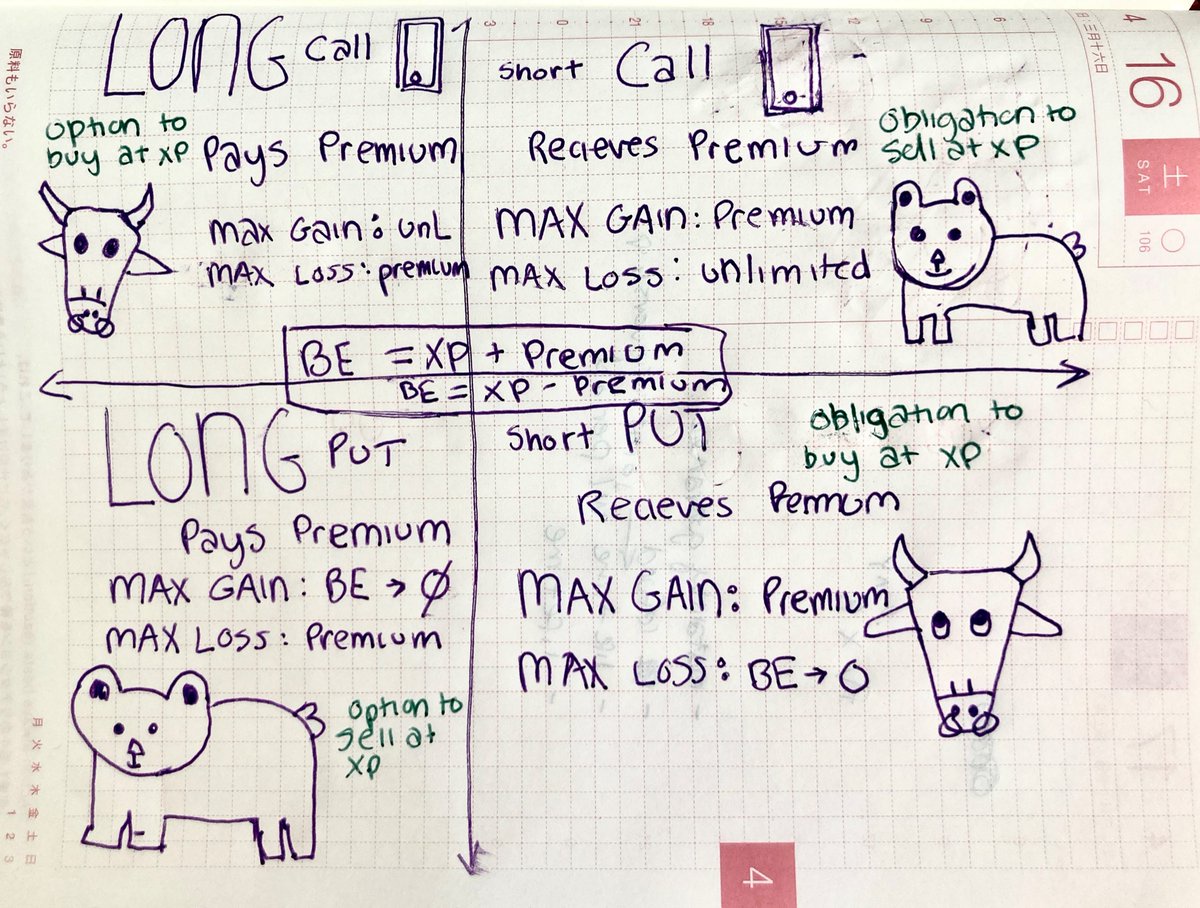 LONG Call
option to
buy at XP
Pays Premium
Max Gain: UNL
MAX Loss: premium
short Call
Recieves Premium
Obligation to
sell at XP
MAX GAIN: Premium
MAX LOSS: unlimited
BE = XP + Premium
BE = XP - Premium
LONG PUT
Pays Premium
MAX GAIN: BE → Ø
MAX LOSS: Premium
option to
sell at
XP
short PUT
Obligation to
buy at XP
Recieves Permium
MAX GAIN: Premium
MAX LOSS: BE → 0
4
16
土
SAT
106
三月十六日
原料もいらない。
3
0
21
18
15
12
9
6
月 火 水 木 金 土 日
1 2 3
4